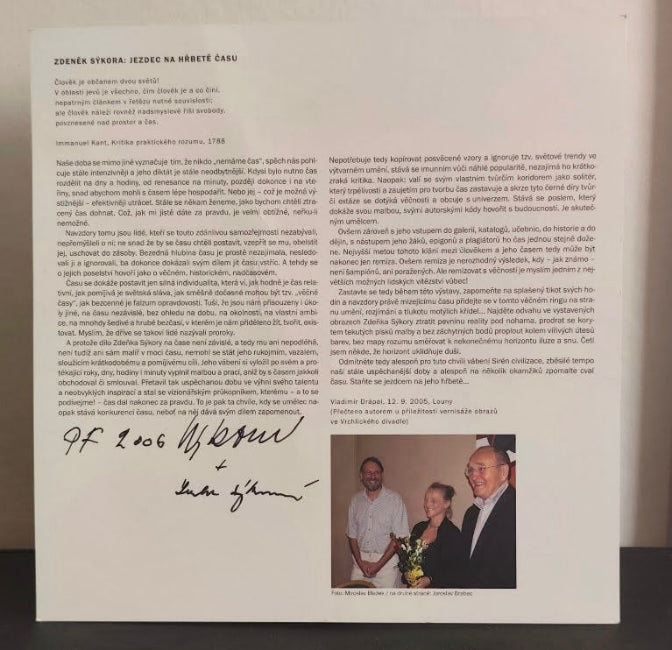 ZDENĚK SÝKORA: JEZDEC NA HŘBETĚ ČASU
Člověk je občanem dvou světů!
V oblasti jevů je všechno, čím člověk je a co činí,
nepatrným článkem v řetězu nutné souvislosti;
ale člověk náleží rovněž nadsmyslové říši svobody,
povznesené nad prostor a čas.
Immanuel Kant, Kritika praktického rozumu, 1788
Naše doba se mimo jiné vyznačuje tím, že nikdo „nemáme čas", spěch nás pohl-
cuje stále intenzivněji a jeho diktát je stále neodbytnější. Kdysi bylo nutno čas
rozdělit na dny a hodiny, od renesance na minuty, později dokonce i na vte-
řiny, snad abychom mohli s časem lépe hospodařit. Nebo jej – což je možná vý-
stižnější – efektivněji utrácet. Stále se někam ženeme, jako bychom chtěli ztra-
cený čas dohnat. Což, jak mi jistě dáte za pravdu, je velmi obtížné, neřku-li
nemožné.
Navzdory tomu jsou lidé, kteří se touto zdánlivou samozřejmostí nezabývali,
nepřemýšleli o ní; ne snad že by se času chtěli postavit, vzepřít se mu, obelstít
jej, uschovat do zásoby. Bezedná hlubina času je prostě nezajímala, nesledo-
vali ji a ignorovali, ba dokonce dokázali svým dílem jít času vstříc. A tehdy se
o jejich poselství hovoří jako o věčném, historickém, nadčasovém.
Času se dokáže postavit jen silná individualita, která ví, jak hodně je čas rela-
tivní, jak pomíjivá je světská sláva, jak směšně dočasné mohou být tzv. „věčné
časy", jak bezcenné je falzum opravdovosti. Tuší, že jsou nám přisouzeny i úko-
ly jiné, na času nezávislé, bez ohledu na dobu, na okolnosti, na vlastní ambi-
ce, na mnohdy šedivé a hrubé bezčasí, v kterém je nám přiděleno žít, tvořit, exis-
tovat. Myslím, že dříve se takoví lidé nazývali proroky.
A protože dílo Zdeňka Sýkory na čase není závislé, a tedy mu ani nepodléhá,
není tudíž ani sám malíř v moci času, nemohl se stát jeho rukojmím, vazalem,
sloužícím krátkodobému a pomíjivému cíli. Jeho vábení si vyložil po svém a pro-
tékající roky, dny, hodiny i minuty vyplnil malbou a prací, aniž by s časem jakkoli
obchodoval či smlouval. Přetavil tak uspěchanou dobu ve výhni svého talentu
a neobvyklých inspirací a stal se vizionářským průkopníkem, kterému – a to se
podivejme! – čas dal nakonec za pravdu. To je pak ta chvíle, kdy se umělec na-
opak stává konkurencí času, neboť na něj dává svým dílem zapomenout.
Nepotřebuje tedy kopírovat posvěcené vzory a ignoruje tzv. světové trendy ve
výtvarném umění, stává se imunním vůči náhlé popularitě, nezajímá ho krátko-
zraká kritika. Naopak: valí se svým vlastním tvůrčím koridorem jako solitér,
který trpělivostí a zaujetím pro tvorbu čas zastavuje a skrze tyto černé díry tvůr-
čí extáze se dotýká věčnosti a obcuje s univerzem. Stává se poslem, který
dokáže svou malbou, svými autorskými kódy hovořit s budoucností. Je skuteč-
ným umělcem.
Ovšem zároveň s jeho vstupem do galerií, katalogů, učebnic, do historie a do
dějin, s nástupem jeho žáků, epigonů a plagiátorů ho čas jednou stejně dože-
ne. Nejvyšší metou tohoto klání mezi člověkem a jeho časem tedy může být
nakonec jen remíza. Ovšem remíza je nerozhodný výsledek, kdy – jak známo –
není šampiónů, ani poražených. Ale remizovat s věčností je myslím jedním z nej-
větších možných lidských vítězství vůbec!
Zastavte se tedy během této výstavy, zapomeňte na splašený tikot svých ho-
din a navzdory právě mizejícímu času přidejte se v tomto věčném ringu na stra-
nu umění, rozjímání a tlukotu motýlích křídel... Najděte odvahu ve vystavených
obrazech Zdeňka Sýkory ztratit pevninu reality pod nohama, prodrat se kory-
tem tekutých písků malby a bez záchytných bodů proplout kolem vílivých útesů
barev, bez mapy rozumu směřovat k nekonečnému horizontu iluze a snu. Čeří
jsem někde, že horizont uklidňuje duši.
Odmítněte tedy alespoň pro tuto chvíli vábení Sirén civilizace, zběsilé tempo
naší stále uspěchanější doby a alespoň na několik okamžiků zpomalte cval
času. Staňte se jezdcem na jeho hřbetě...
Vladimír Drápal, 12. 9. 2005, Louny
(Přečteno autorem u příležitosti vernisáže obrazů
ve Vrchlického divadle)
PF 2006 Sýkora
+
Lenka Sýkorová
Foto: Miroslav / na druhé straně: Jaroslav Brabec